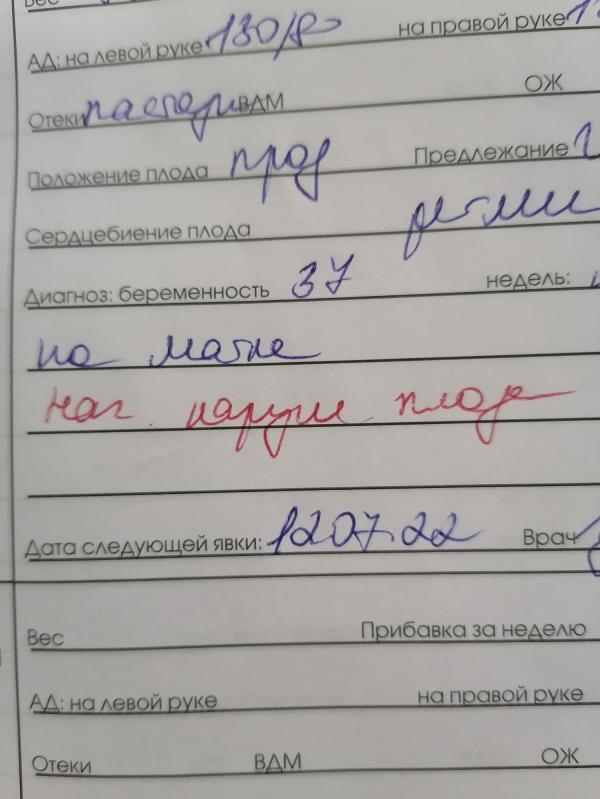 АД: на левой руке 130/80 на правой руке 1
Отеки пастозн ВДМ ОЖ
Положение плода прод Предлежание Г
Сердцебиение плода
Диагноз: беременность 37 недель:
на матке
наг. наруш плода
Дата следующей явки: 120722 Врач
Вес Прибавка за неделю
АД: на левой руке на правой руке
Отеки ВДМ ОЖ